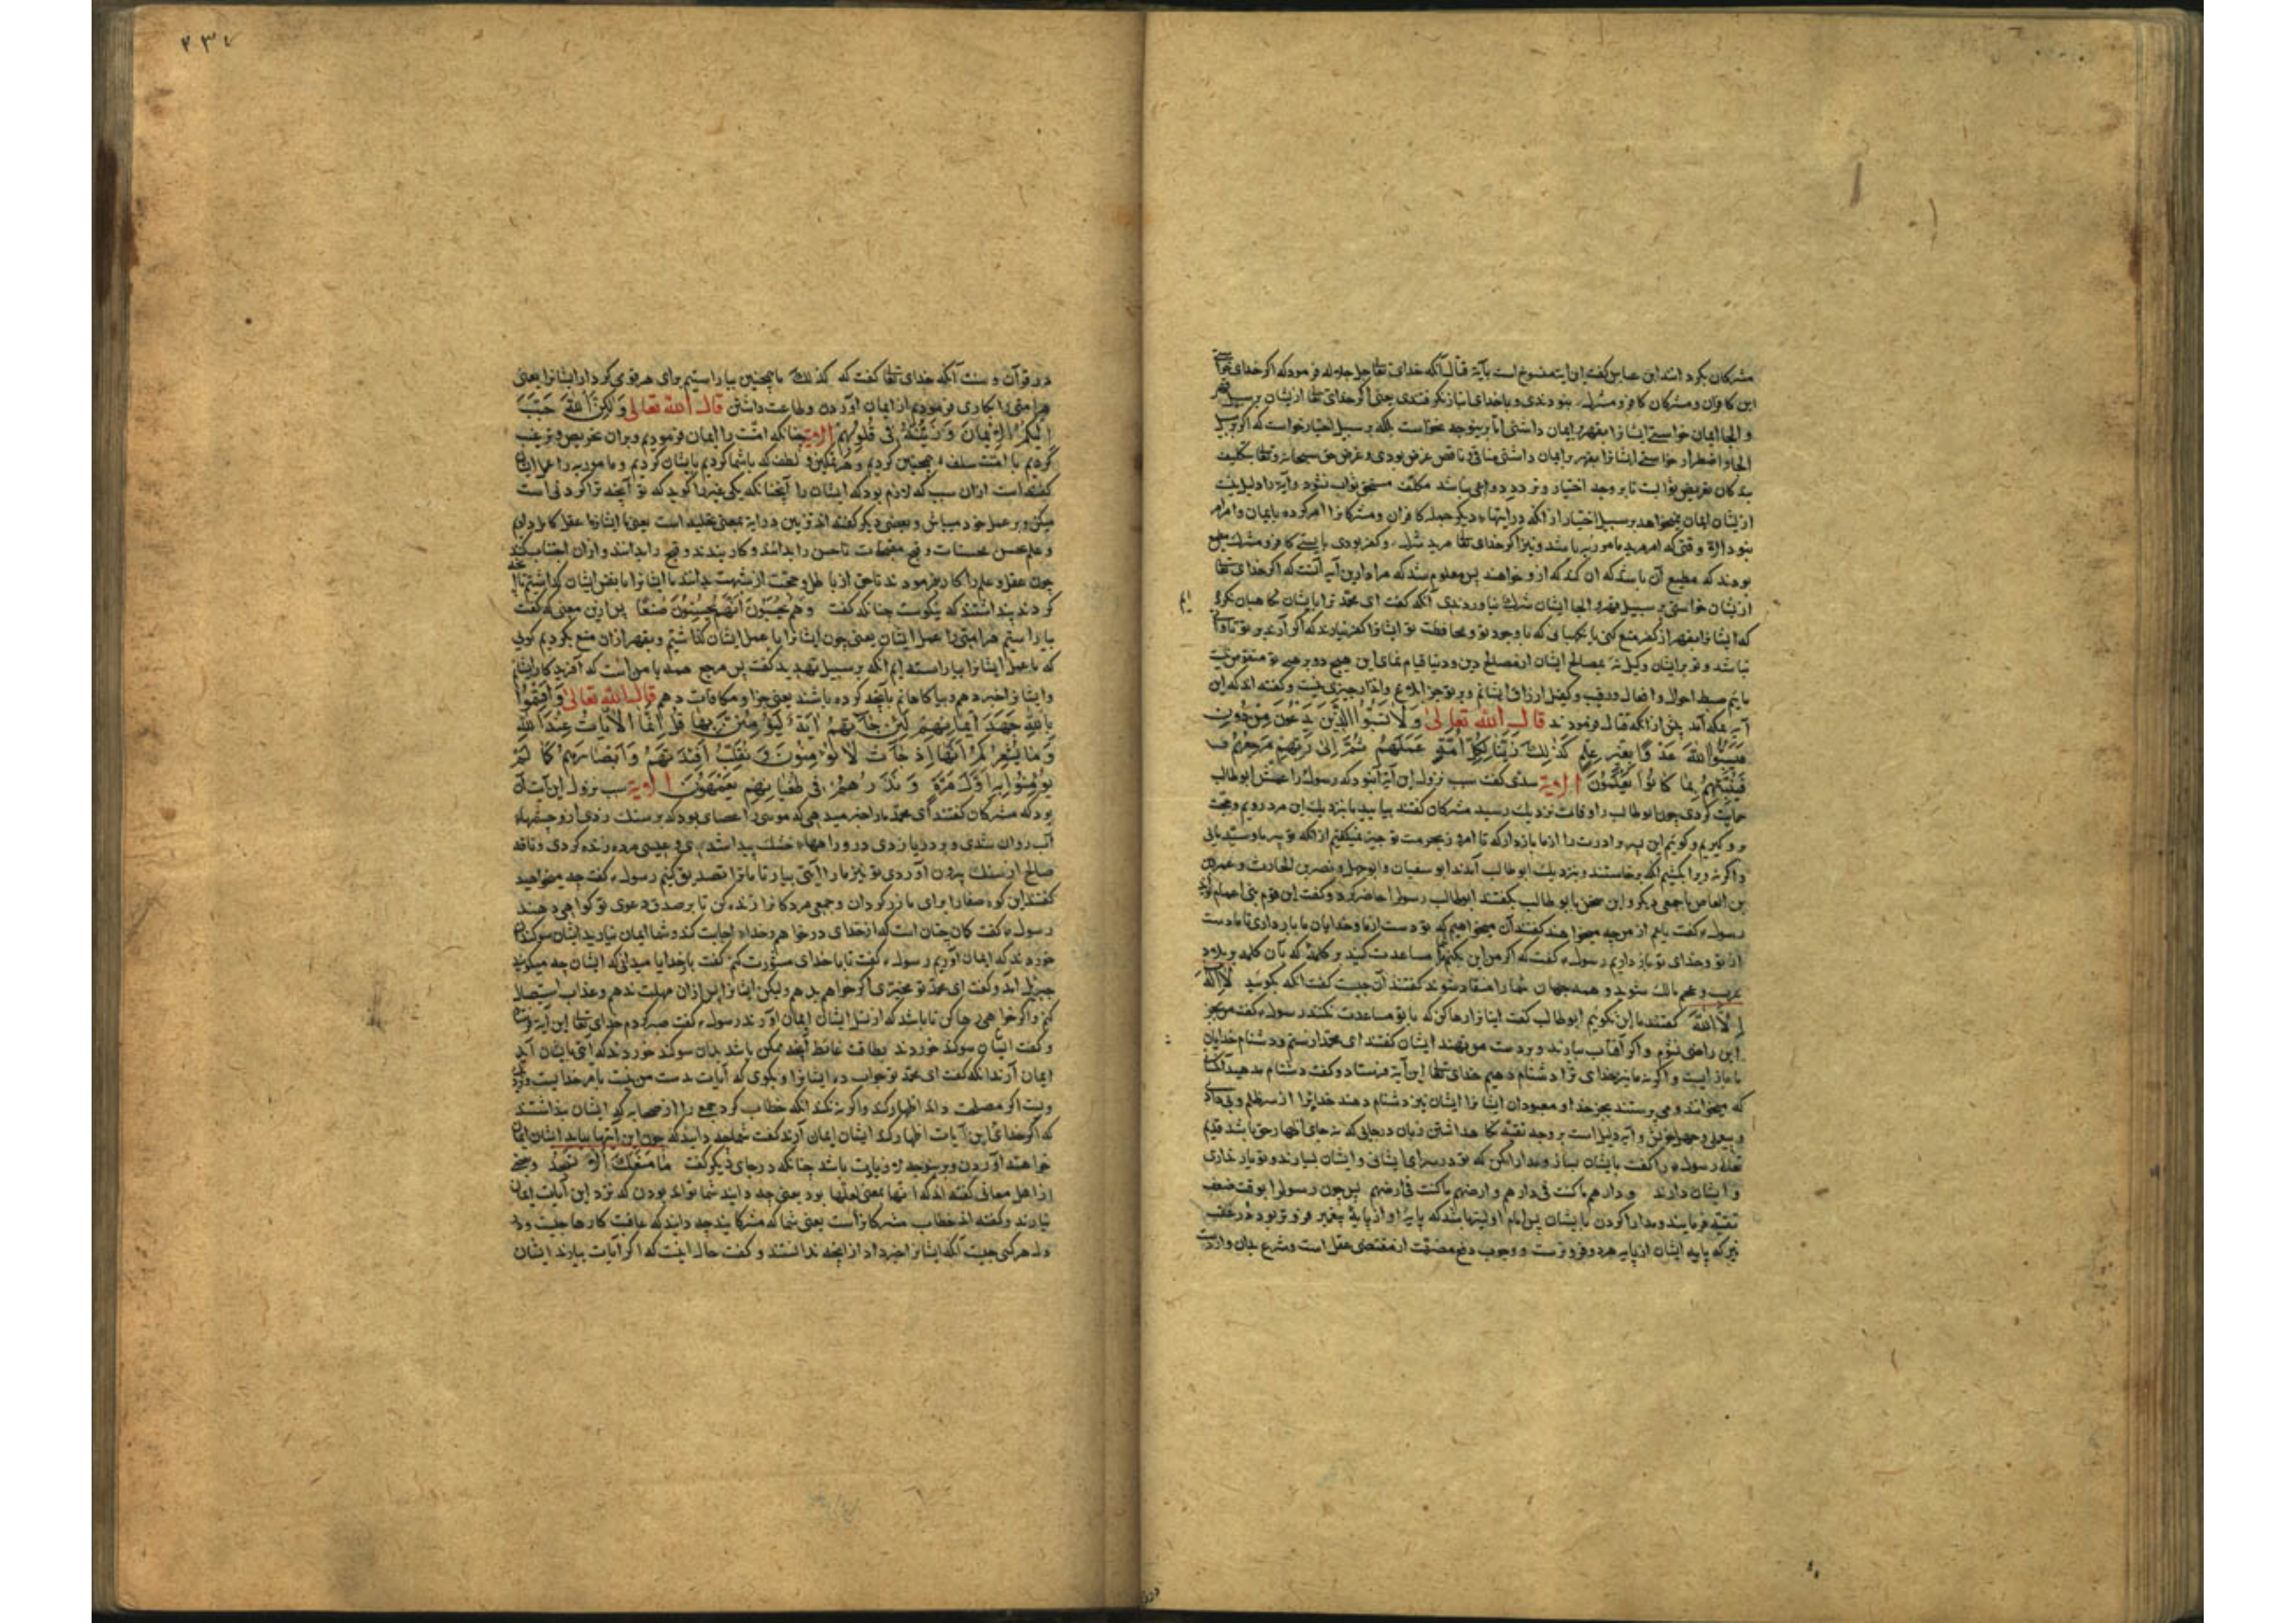 مشرکان بکرد انند ابن عباس کفت این ایة منسوخ است بآیة قتال آنکه خدای تعا جل جلاله فرمود که اکر خدای تعا
این کافران و مشرکان کافر و مشرک نبودندی و با خدای انباز نکرفتندی یعنی اکر خدای تعا از ایشان بر سبیل قهر
و الجا ایمان خواستی ایشانرا بقهر بر ایمان داشتی اما برینوجه نخواست بلکه بر سبیل اختیار خواست که اکر بر سبیل
الجا و اضطرار خواستی ایشانرا بقهر بر ایمان داشتی منافی و ناقض غرض بودی و غرض حق سبحانه و تعا بتکلیف
بندکان تعریض ثوابست تا بر وجه اختیار و تردد دواعی نباشد مکلف مستحق ثواب نشود و آیة را دلیل نیست
از ایشان ایمان نمیخواهد بر سبیل اختیار از آنکه در ایتهاء دیکر جمله کافران و مشرکانرا امر کرده بایمان و امر امر
نبود الا وقتی که امر مرید مامور به باشد و نیز اکر خدای تعا مرید شرک و کفر بودی بایستی کافر و مشرک مطیع
بودند که مطیع آن باشد که ان کند که ازو خواهند پس معلوم شد که مراد ازین آیه آنست که اکر خدای تعا
از ایشان خواستی بر سبیل قهر و الجا ایشان شرک نیاوردندی آنکه کفت ای محمد ترا بایشان نکاهبان نکرد
که ایشانرا بقهر از کفر منع کنی یا نکهبانی که با وجود تو و محافظت تو ایشانرا کفر نیارند که اکر آرند بر تو تاوانی
نباشد و تو بر ایشان وکیل نهٔ بمصالح ایشان از مصالح دین و دنیا قیام نمای این هیچ دو برهی تو مفوض نیست
مایم ضبط احوال و افعال و رقیب و کفیل ارزاق ایشانم و بر تو جز ابلاغ و انذار چیزی نیست و کفته اند که این
آیه بمکه آمد پیش از آنکه قتال فرمودند قال الله تعالی وَلَا تَسُبُّوا الَّذِينَ يَدْعُونَ مِنْ دُونِ
فَيَسُبُّوا اللهَ عَدْوًا بِغَيْرِ عِلْمٍ كَذَٰلِكَ زَيَّنَّا لِكُلِّ أُمَّةٍ عَمَلَهُمْ ثُمَّ إِلَىٰ رَبِّهِمْ مَرْجِعُهُمْ
فَيُنَبِّئُهُمْ بِمَا كَانُوا يَعْمَلُونَ الایة سدی کفت سبب نزول این آیة آنبود که رسول را عمش ابو طالب
حمایت کردی چون ابو طالب را وفات نزدیک رسید مشرکان کفتند بیایید تا بنزدیک این مرد رویم و حجت
برو کیریم و کوییم این پسر وادرت را از ما بازدار که تا امروز بحرمت تو چیز نمیکفتیم از آنکه تو پیر ما و سید مایی
و اکر نه ویرا بکشیم آنکه برخاستند و بنزدیک ابو طالب آمدند ابو سفیان و ابو جهل و نضر بن الحارث و عمرو
بن العاص با جمعی دیکر و این سخن با ابو طالب بکفتند ابو طالب رسول را حاضر کرد و کفت این قوم بنی اعمام تواند
رسول کفت یا عم از من چه میخواهند کفتند آن میخواهیم که تو دست از ما و خدایان ما بازداری تا ما دست
از تو و خدای تو باز داریم رسول کفت که اکر من این بکنم شما مساعدت کنید بر کلمهٔ که بآن کلمه بر بلاد
عرب و عجم مالک شوید و همه جهان شما را منقاد شوند کفتند آن چیست کفت آنکه بکویید لا اله
الا الله کفتند ما این نکوییم ابو طالب کفت اینانرا رها کن که با تو مساعدت نکنند رسول کفت من بجز
این راضی نشوم و اکر آفتاب بیارند و بر دست من نهند ایشان کفتند ای محمد از سب و دشنام خدایان
ما باز ایست و اکر نه ما نیز خدای ترا دشنام دهیم خدای تعا این آیة فرستاد و کفت دشنام مدهید آنکسانی
که میخوانند و می پرستند بجز خدا و معبودان ایشانرا ایشان نیز دشنام دهند خدایرا از سر ظلم و بی دادی
و بیعلمی و جهل خویش و آیه دلیل است بر وجه تقیه نکاهداشتن زبان در جایی که نه جای اظهار حق باشد قدیم
تعالی رسول را کفت بایشان بساز و مدارا کن که تو در سرای ایشانی و ایشان بسیارند و تو یار نداری
و ایشان دارند و دارهم ما کنت فی دارهم و ارضهم ما کنت فی ارضهم پس چون رسول را بوقت ضعف
تقیه فرمایند و مدارا کردن با ایشان پس امام اولیتر باشد که پایهٔ او از پایهٔ پیغمبر فروتر بود و در غیبت
نیز که پایه ایشان از پایه هر دو فروترست و وجوب دفع مضرت از مقتضی عقل است و شرع بدان واردست
۲۳٤
در قرآن و سنت آنکه خدای تعا کفت که کذلک ما همچنین بیاراستیم برای هر قومی کردار ایشانرا یعنی
هر امتی را بکاری فرمودیم از ایمان آوردن و طاعت داشتن قال الله تعالی وَلَٰكِنَّ اللهَ حَبَّبَ
إِلَيْكُمُ الْإِيمَانَ وَزَيَّنَهُ فِي قُلُوبِكُمْ الایة چنانکه امت را ایمان فرمودیم و بران تحریض و ترغیب
کردیم با امت سلف همچنین کردیم و هر تمکین و لطف که با شما کردیم بایشان کردیم و مامور به را عمل ایشان
کفته است ازان سبب که لازم بود که ایشان را آنچنانکه یکی غیری را کوید که تو آنچه ترا کردنی است
میکن و بر عمل خود میباش و بعضی دیکر کفته اند تزیین در آیة بمعنی تخلیه است یعنی ما ایشانرا عقل کامل دادیم
و علم بحسن محسنات و قبح مقبحات تا حسن را بدانند و کار بندند و قبح را بدانند و ازان اجتناب کنند
چون عقل و علم را کار نفرمودند تا حق از باطل و حجت از شبهت بدانند ما ایشانرا با نفس ایشان کذاشتیم تا آنچه
کردند پنداشتند که نیکوست چنانکه کفت وَهُمْ يَحْسَبُونَ أَنَّهُمْ يُحْسِنُونَ صُنْعًا پس ازین معنی کفت
بیاراستیم هر امتی را عمل ایشان یعنی چون ایشانرا با عمل ایشان کذاشتیم و بقهر ازان منع نکردیم کویی
که ما عمل ایشانرا بیاراسته ایم آنکه بر سبیل تهدید کفت پس مرجع همه با من است که آفریدکار ایشانم
و ایشانرا خبر دهم و بیاکاهانم بآنچه کرده باشند یعنی جزا و مکافات دهم قال الله تعالی وَأَقْسَمُوا
بِاللهِ جَهْدَ أَيْمَانِهِمْ لَئِنْ جَاءَتْهُمْ آيَةٌ لَيُؤْمِنُنَّ بِهَا قُلْ إِنَّمَا الْآيَاتُ عِنْدَ اللهِ
وَمَا يُشْعِرُكُمْ أَنَّهَا إِذَا جَاءَتْ لَا يُؤْمِنُونَ وَنُقَلِّبُ أَفْئِدَتَهُمْ وَأَبْصَارَهُمْ كَمَا لَمْ
يُؤْمِنُوا بِهِ أَوَّلَ مَرَّةٍ وَنَذَرُهُمْ فِي طُغْيَانِهِمْ يَعْمَهُونَ الایة سبب نزول این آیت آن
بود که مشرکان کفتند ای محمد ما را خبر میدهی که موسی را عصای بود که بر سنک زدی ازو چشمهاء
آب روان شدی و بر دریا زدی درو راههاء خشک پیدا شدی و عیسی مرده زنده کردی و ناقه
صالح از سنک بیرون آوردی تو نیز ما را آیتی بیار تا ما ترا تصدیق کنیم رسول کفت چه میخواهید
کفتند این کوه صفا را برای ما زر کردان و جمعی مردکانرا زنده کن تا بر صدق دعوی تو کواهی دهند
رسول کفت کان چنان است که از خدای درخواهم و خداء اجابت کند و شما ایمان نیارید ایشان سوکندها
خوردند که ایمان آوریم رسول کفت تا با خدای مشورت کنم کفت بار خدایا میدانی که ایشان چه میکویند
جبریل آمد و کفت ای محمد تو مخیری اکر خواهی بدهم ولیکن ایشانرا پس ازان مهلت ندهم و عذاب استیصال
کنم و اکر خواهی رها کن تا باشد که از نسل ایشان ایمان آورند رسول کفت صبر کردم خدای تعا این آیة فرستاد
و کفت ایشان سوکند خوردند بطاقت غایت آنچه ممکن باشد بدان سوکند خوردند که آیتی بایشان آید
ایمان آرند آنکه کفت ای محمد تو جواب ده ایشانرا و بکوی که آیات بدست من نیست بامر خدایست و نزد
ویست اکر مصلحت داند اظهار کند و اکر نه نکند آنکه خطاب کرد جمع را از صحابه که ایشان پنداشتند
که اکر خدای این آیات اظهار کند ایشان ایمان آرند کفت شما چه دانید که چون این آیتها بیاید ایشان ایمان
خواهند آوردن و برینوجه لا زیادت باشد چنانکه در جای دیکر کفت مَا مَنَعَكَ أَلَّا تَسْجُدَ و بعضی
از اهل معانی کفته اند که انها بمعنی لعلها بود یعنی چه دانید شما تواند بودن که نزد این آیات ایمان
نیارند و کفته اند خطاب مشرکانراست یعنی شما که مشرکانید چه دانید که عاقبت کارها چیست و در
دل هر کس چیست آنکه ایشانرا خبر داد از آنچه ندانستند و کفت حال اینست که اکر آیات بیارند ایشان